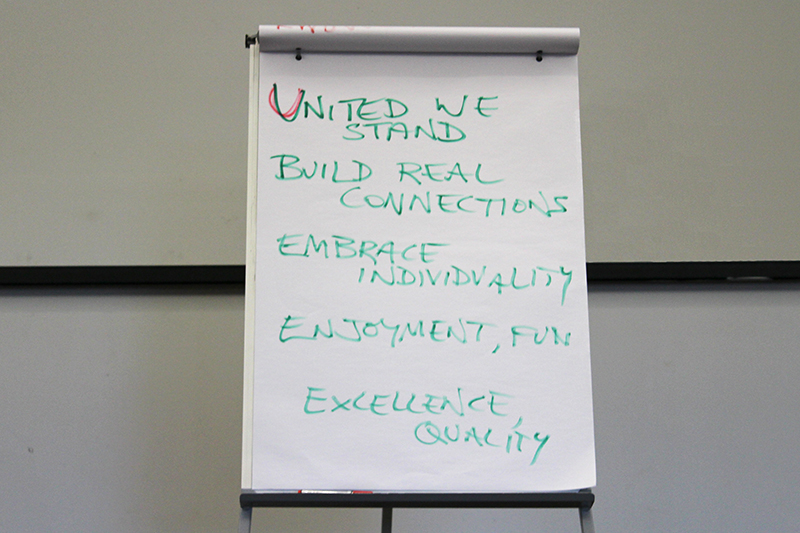 UNITED WE
STAND
BUILD REAL
CONNECTIONS
EMBRACE
INDIVIDUALITY
ENJOYMENT, FUN
EXCELLENCE,
QUALITY